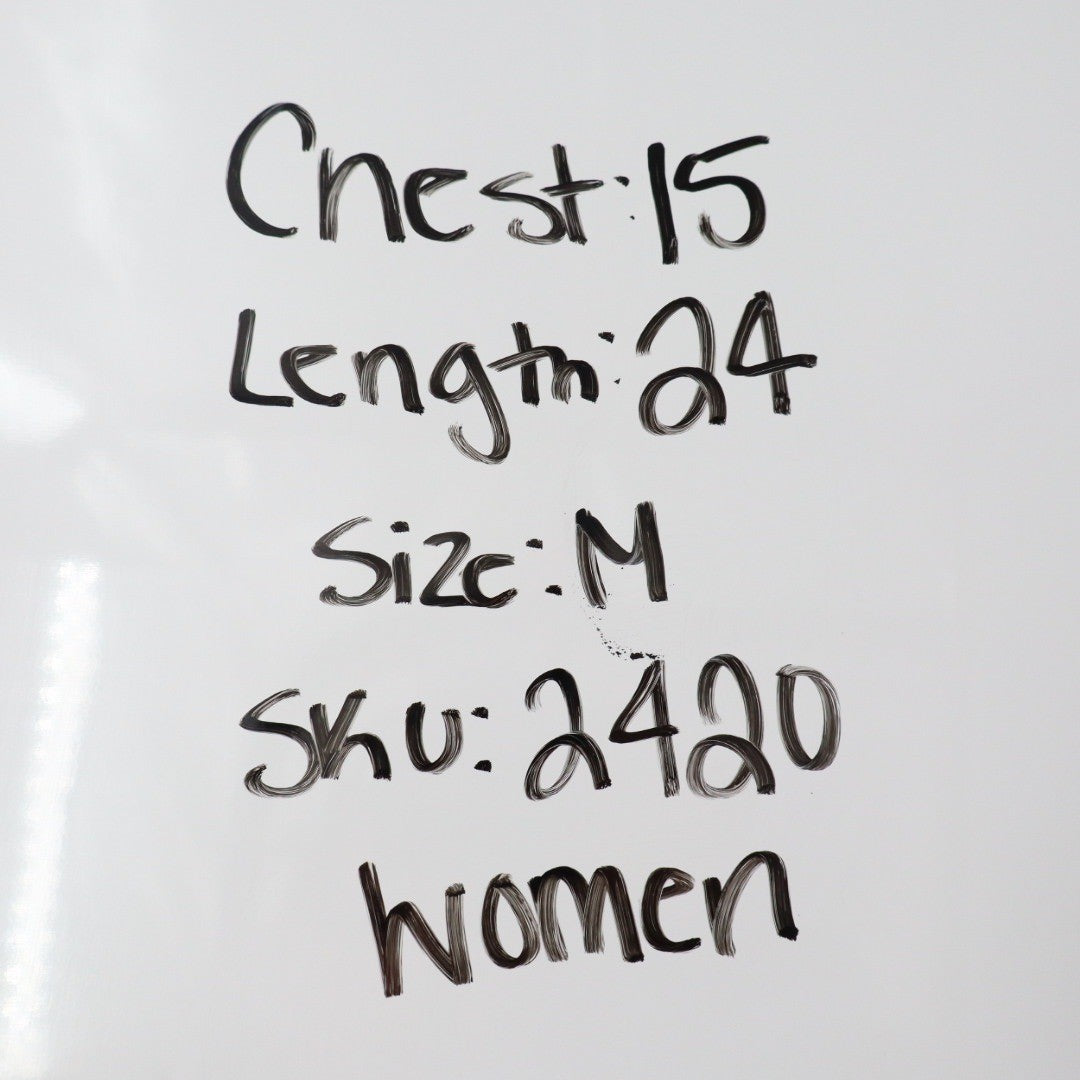 Chest: 15
Length: 24
Size: M
SKU: 2420
Women